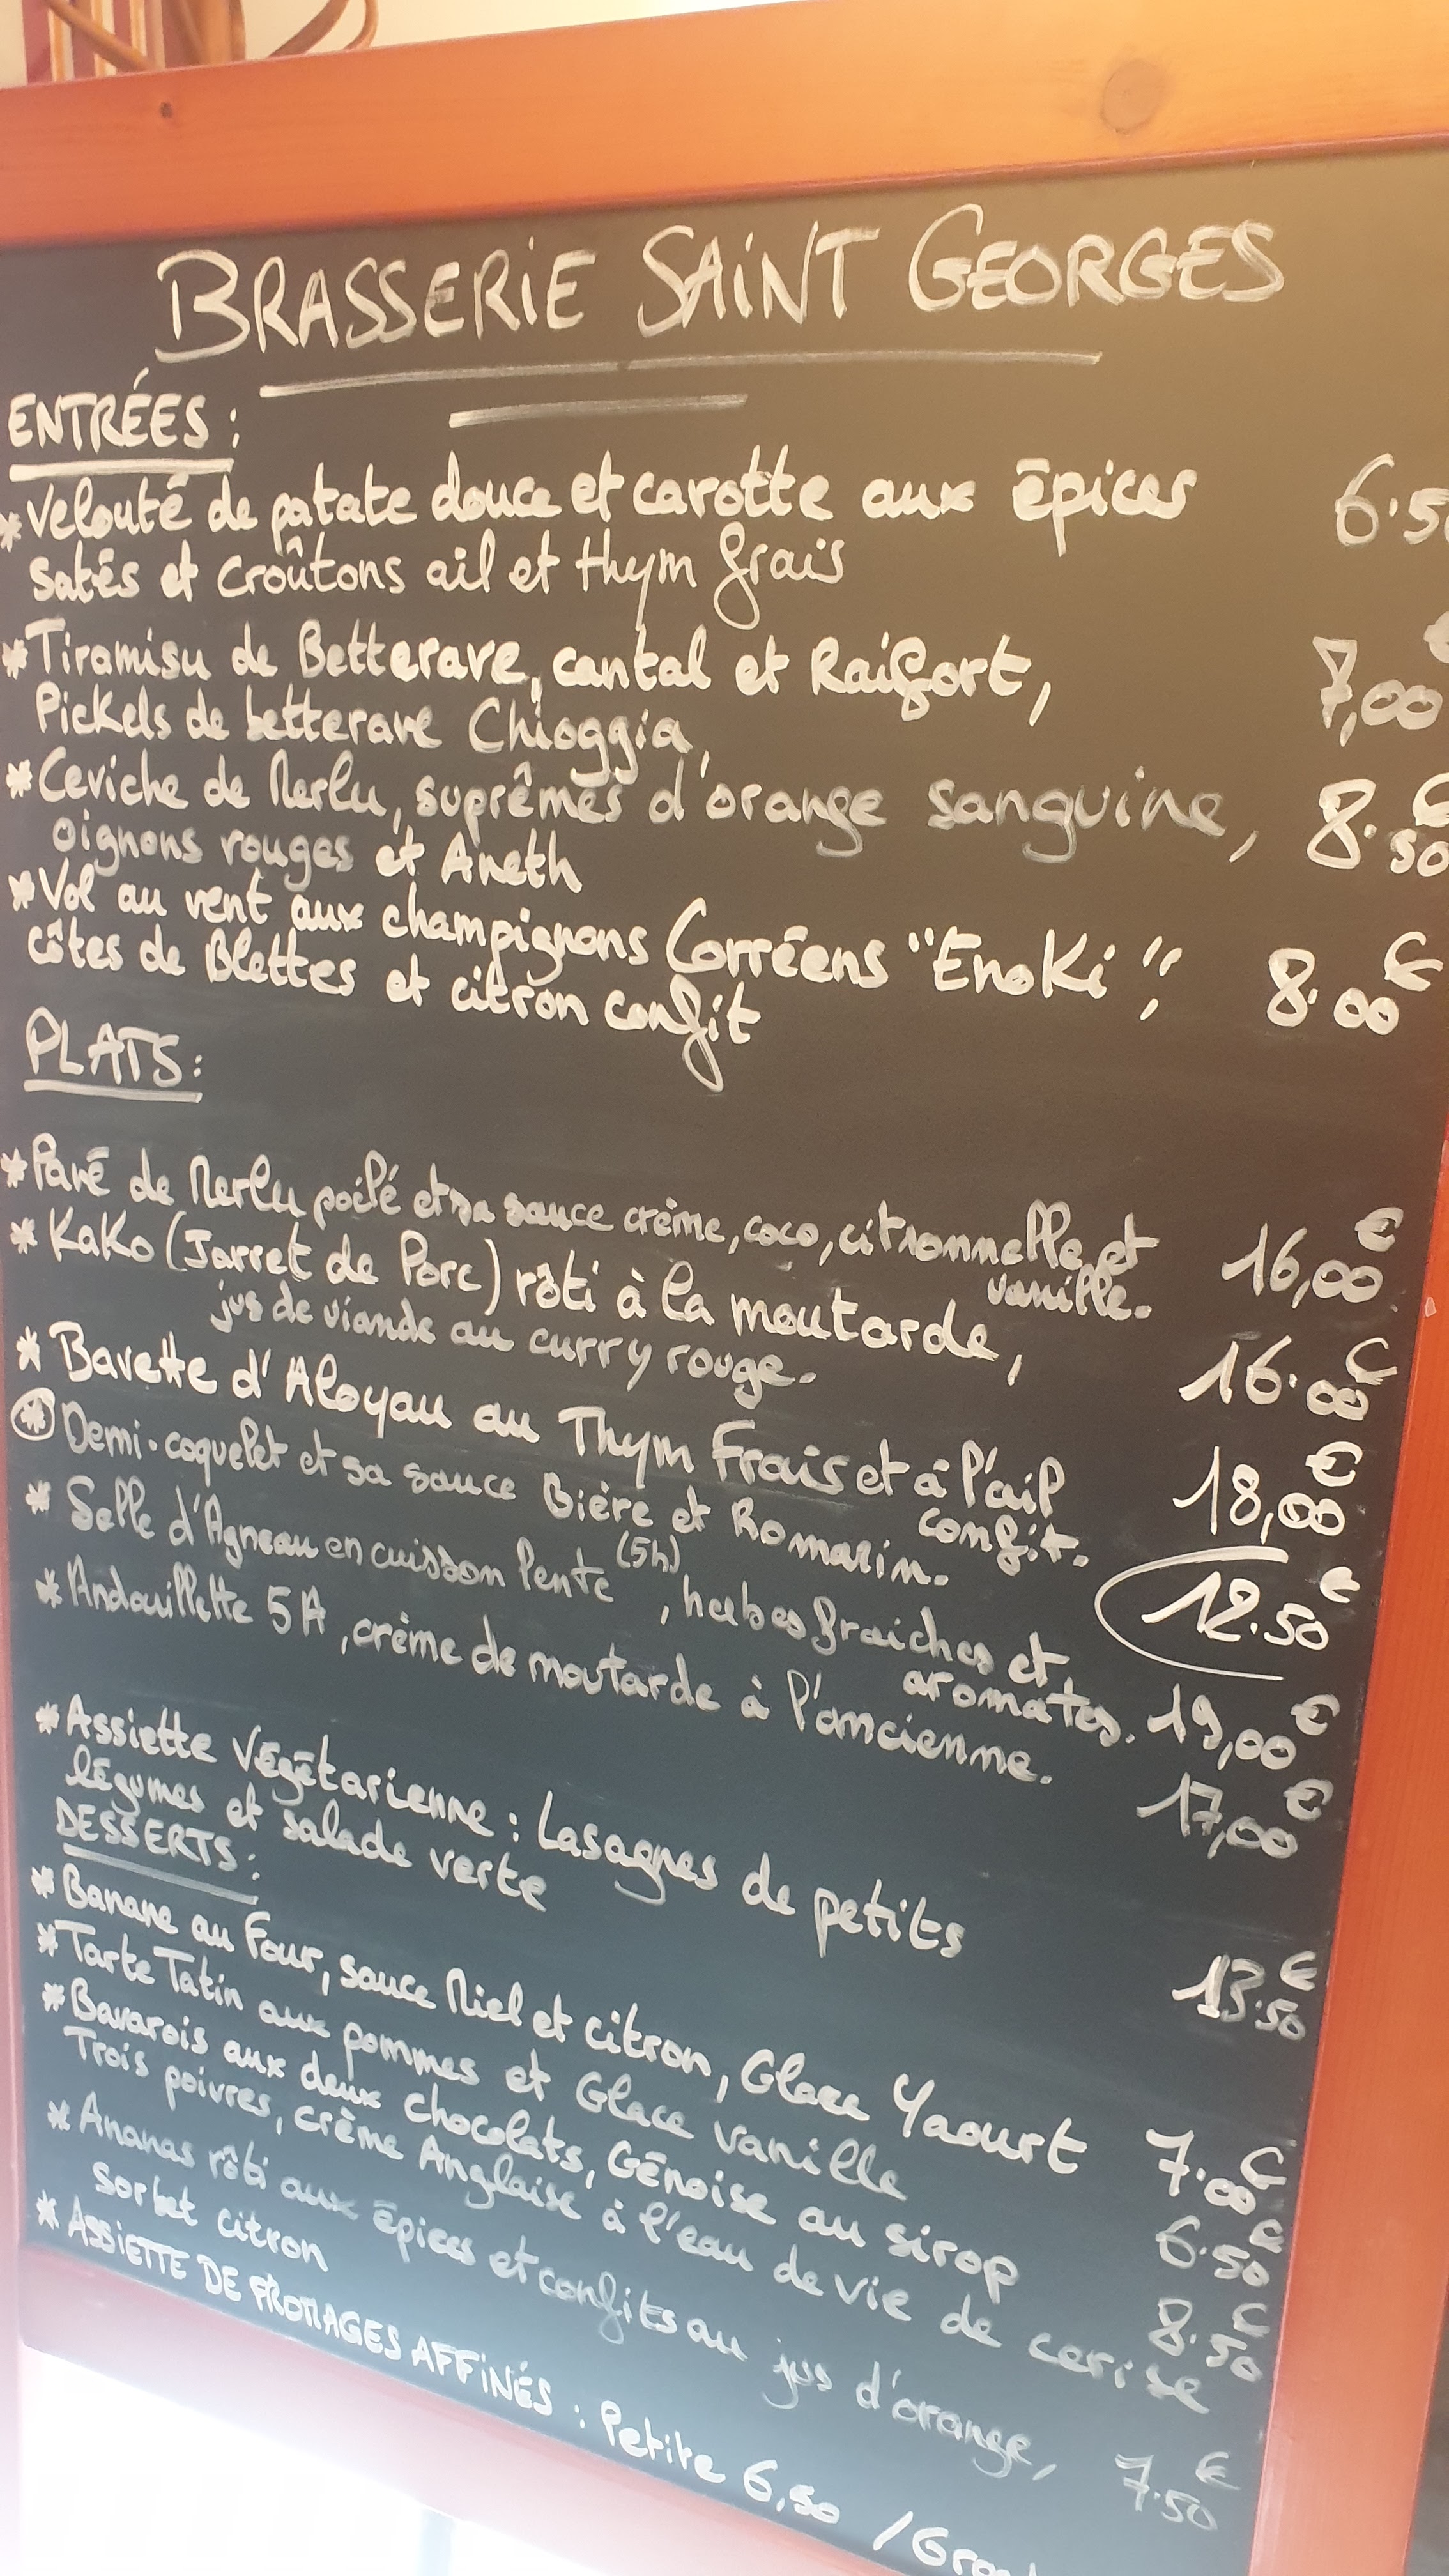 BRASSERIE SAINT GEORGES
ENTRÉES :
* Velouté de patate douce et carotte aux épices 6.5
satés et croûtons ail et thym frais
* Tiramisu de Betterave, cantal et Raifort, 7,00€
Pickels de betterave Chioggia,
* Ceviche de Merlu, suprêmes d'orange sanguine, 8.50€
oignons rouges et Aneth
* Vol au vent aux champignons Corréens "Enoki", 8.00€
côtes de Blettes et citron confit
PLATS :
* Pavé de Merlu poêlé et sa sauce crème, coco, citronnelle et 16,00€
vanille.
* Kako (Jarret de Porc) rôti à la moutarde, 16.00€
jus de viande au curry rouge.
* Bavette d'Aloyau au Thym Frais et à l'ail 18,00€
confit.
* Demi-coquelet et sa sauce Bière et Romarin. 12.50€
* Selle d'Agneau en cuisson lente (5h), herbes fraiches et
aromates. 19,00€
* Andouillette 5A, crème de moutarde à l'ancienne. 17,00€
* Assiette Végétarienne : Lasagnes de petits
légumes et salade verte 13.50€
DESSERTS :
* Banane au Four, sauce Miel et citron, Glace Yaourt 7.00€
* Tarte Tatin aux pommes et Glace vanille 6.50€
* Bavarois aux deux chocolats, Génoise au sirop 8.50€
Trois poivres, crème Anglaise à l'eau de vie de cerise
* Ananas rôti aux épices et confits au jus d'orange, 7.50€
Sorbet citron
* ASSIETTE DE FROMAGES AFFINÉS : Petite 6,50 /